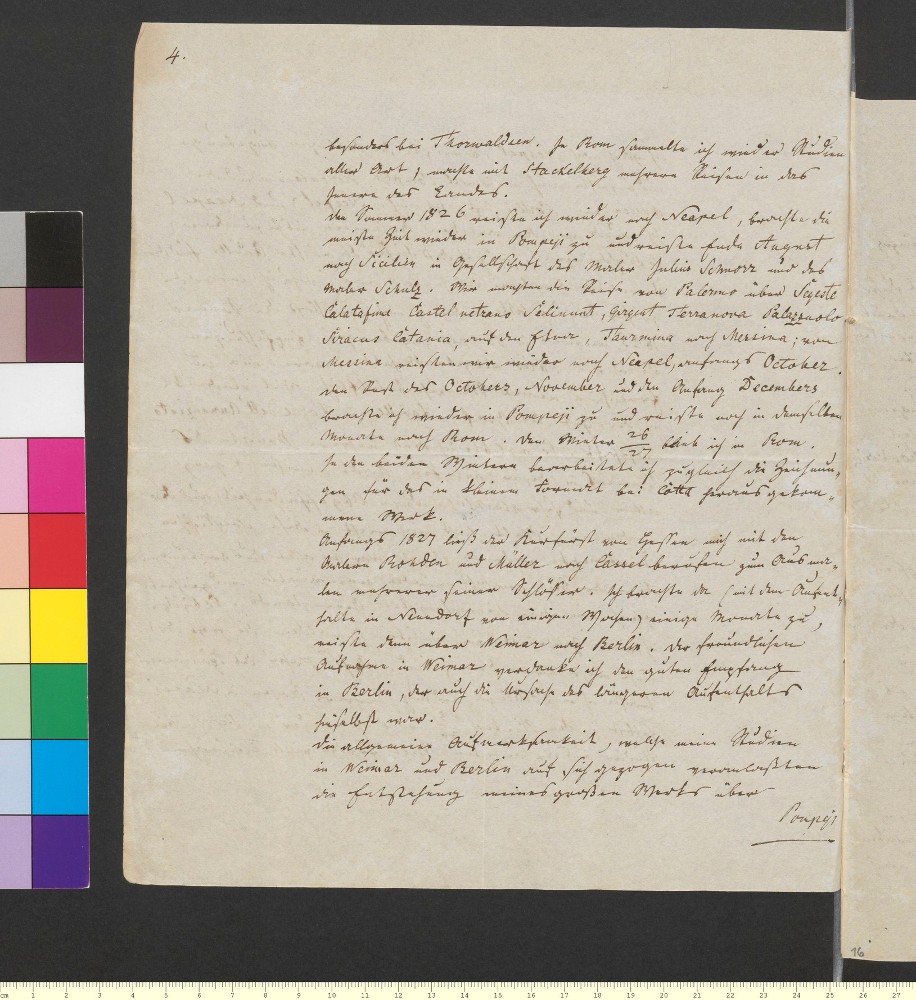 4.
besonders bei Thorwaldsen. In Rom sammelte ich wieder Studien
aller Art; machte mit Stackelberg mehrere Reisen in das
Innere des Landes.
Den Sommer 1826 reiste ich wieder nach Neapel, brachte die
meiste Zeit wieder in Pompeji zu und reiste Ende August
nach Sicilien in Gesellschaft des Maler Julius Schnorr und des
Maler Schulz. Wir machten die Reise von Palermo über Segeste
Calatafime Castel vetrano Selinunt, Girgent Terranova Palazzuolo
Siracus Catania, auf den Etna, Taormina nach Messina; von
Messina reisten wir wieder nach Neapel, anfangs October.
den Rest des Octobers, November und den Anfang Decembers
brachte ich wieder in Pompeji zu und reiste noch in demselben
Monate nach Rom. Den Winter 26/27 blieb ich in Rom.
In den beiden Wintern bearbeitete ich zugleich die Zeichnun-
gen für das in kleinem Format bei Cotta herausgekom-
mene Werk.
Anfangs 1827 ließ der Kurfürst von Hessen mich mit den
Malern Rohden und Müller nach Cassel berufen zum Ausma-
len mehrerer seiner Schlösser. Ich brachte da (mit dem Aufent-
halte in Nenndorf von einigen Wochen) einige Monate zu,
reiste dann über Weimar nach Berlin. Der freundlichen
Aufnahme in Weimar verdanke ich den guten Empfang
in Berlin, der auch die Ursache des längeren Aufenthalts
hieselbst war.
Die allgemeine Aufmerksamkeit, welche meine Studien
in Weimar und Berlin auf sich gezogen veranlaßten
die Entstehung meines großen Werks über
Pompeji
16
cm 1 2 3 4 5 6 7 8 9 10 11 12 13 14 15 16 17 18 19 20 21 22 23 24 25 26 27